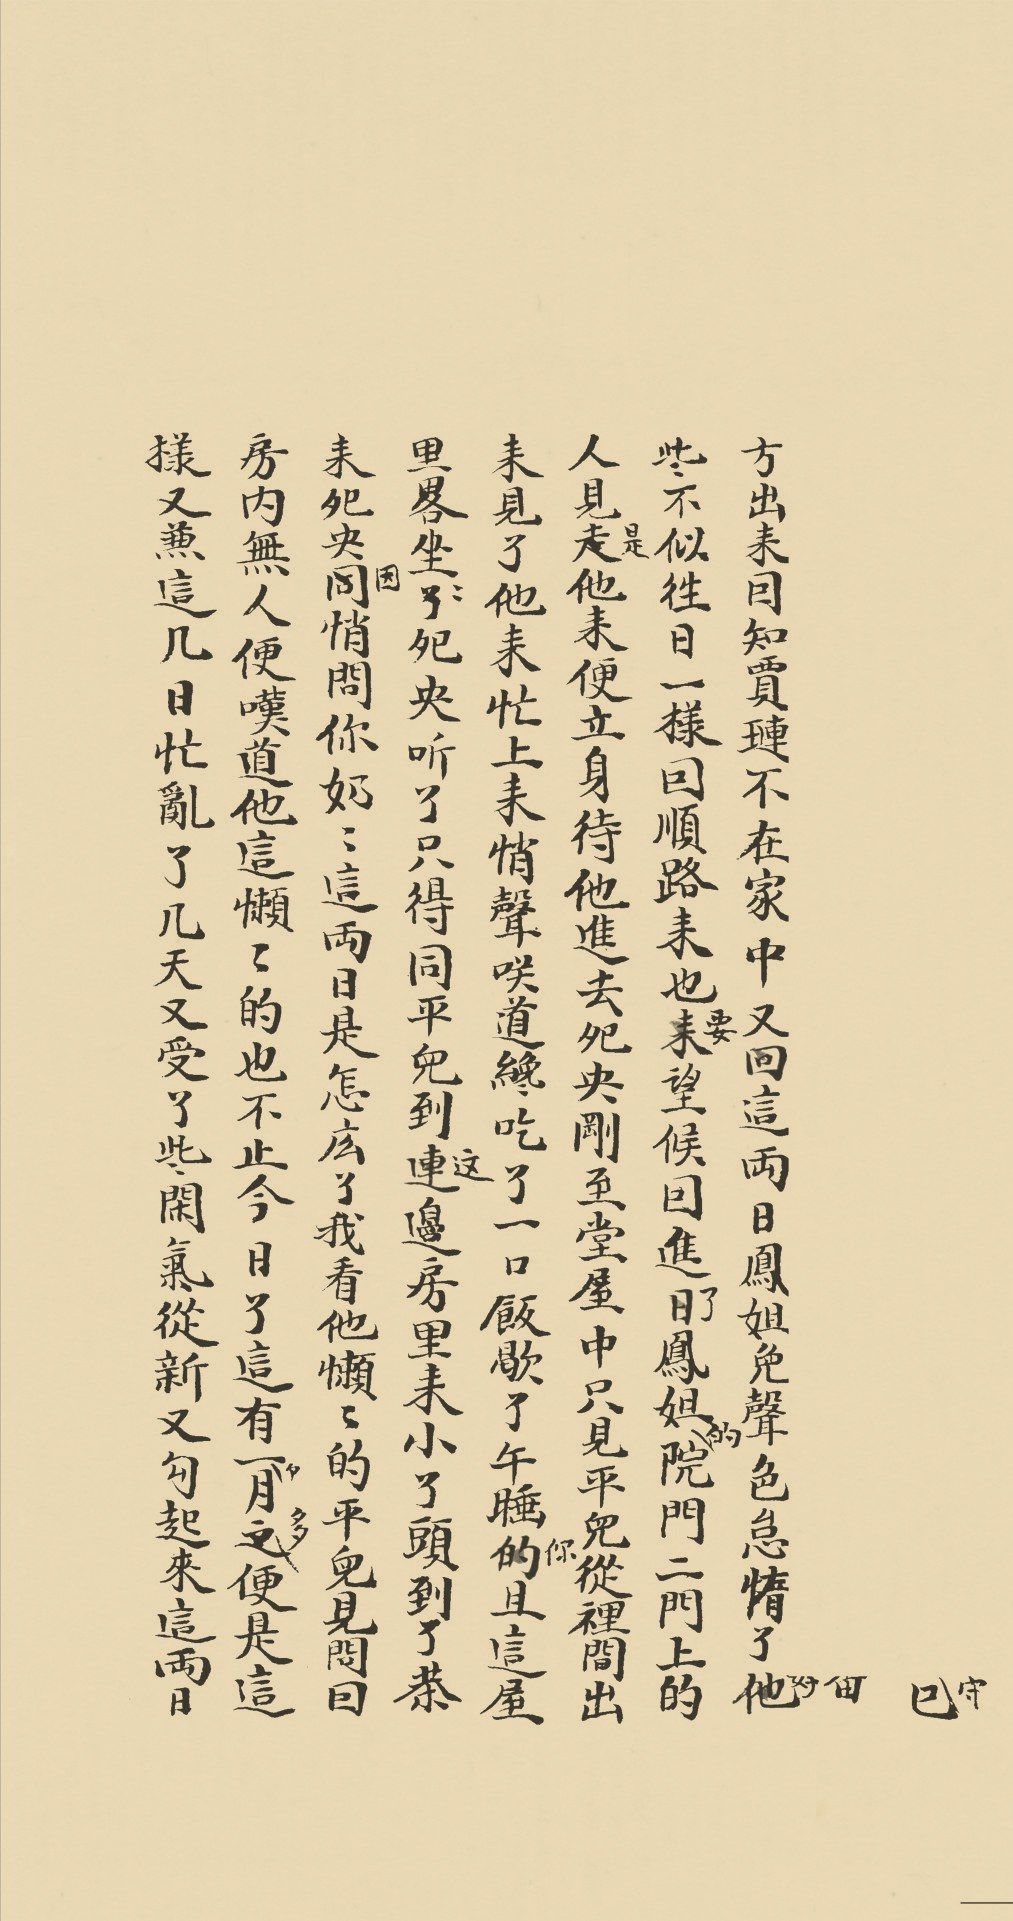 守
已
方出来囙知賈璉不在家中又回這両日鳳姐兒聲色怠惰了他
些不似徃日一樣囙順路来也来望候囙進日鳳姐院門二門上的
要
了
的
人見走他来便立身待他進去夗央剛至堂屋中只見平兒從裡間出
是
来見了他来忙上来悄聲咲道纔吃了一口飯歇了午睡的且這屋
你
里畧坐了夗央听了只得同平兒到連邉房里来小了頭到了茶
这
来夗央同悄問你奶〻這両日是怎庅了我看他懶〻的平兒見問曰
因
房内無人便嘆道他這懶〻的也不止今日了這有一月之便是這
多
樣又兼這几日忙亂了几天又受了些閑氣從新又勾起來這両日